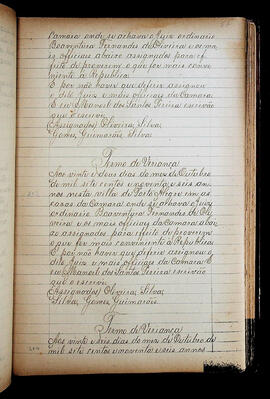 Camara onde se achavão o Juiz ordinario
Boaventura Fernandes de Oliveira e os ma
is officiaes abaixo assignados para ef
feito de proverem o que for mais conve
niente á Republica
E por não haver que deferir assignou
o dito Juiz e mais officiaes da Camara
E eu Manoel dos Santos Pereira escrivão
que o escrevi
(Assignados) Oliveira, Silva,
Gomes, Guimarães, Silva.
Termo de Veriança
Aos vinte e dous dias do mez de Outubro
de mil sete centos enoventa e seis an
nos nesta villa de Porto Alegre em as
casas da Camara onde se achavão o Juiz
ordinario Boaventura Fernandes de Oli
veira e os mais officiaes da Camara abai
xo assignados para effeito de proverem
o que for mais conviniente á Republica
E por não haver que deferir assignou o
dito Juiz e mais officiaes da Camara E
eu Manoel dos Santos Pereira escrivão
que o escrevi
(Assignados) Oliveira, Silva,
Silva, Gomes, Guimarães.
Termo de Veriança
Aos vinte e seis dias do mez de Outubro de
mil sete centos enoventa e seis annos